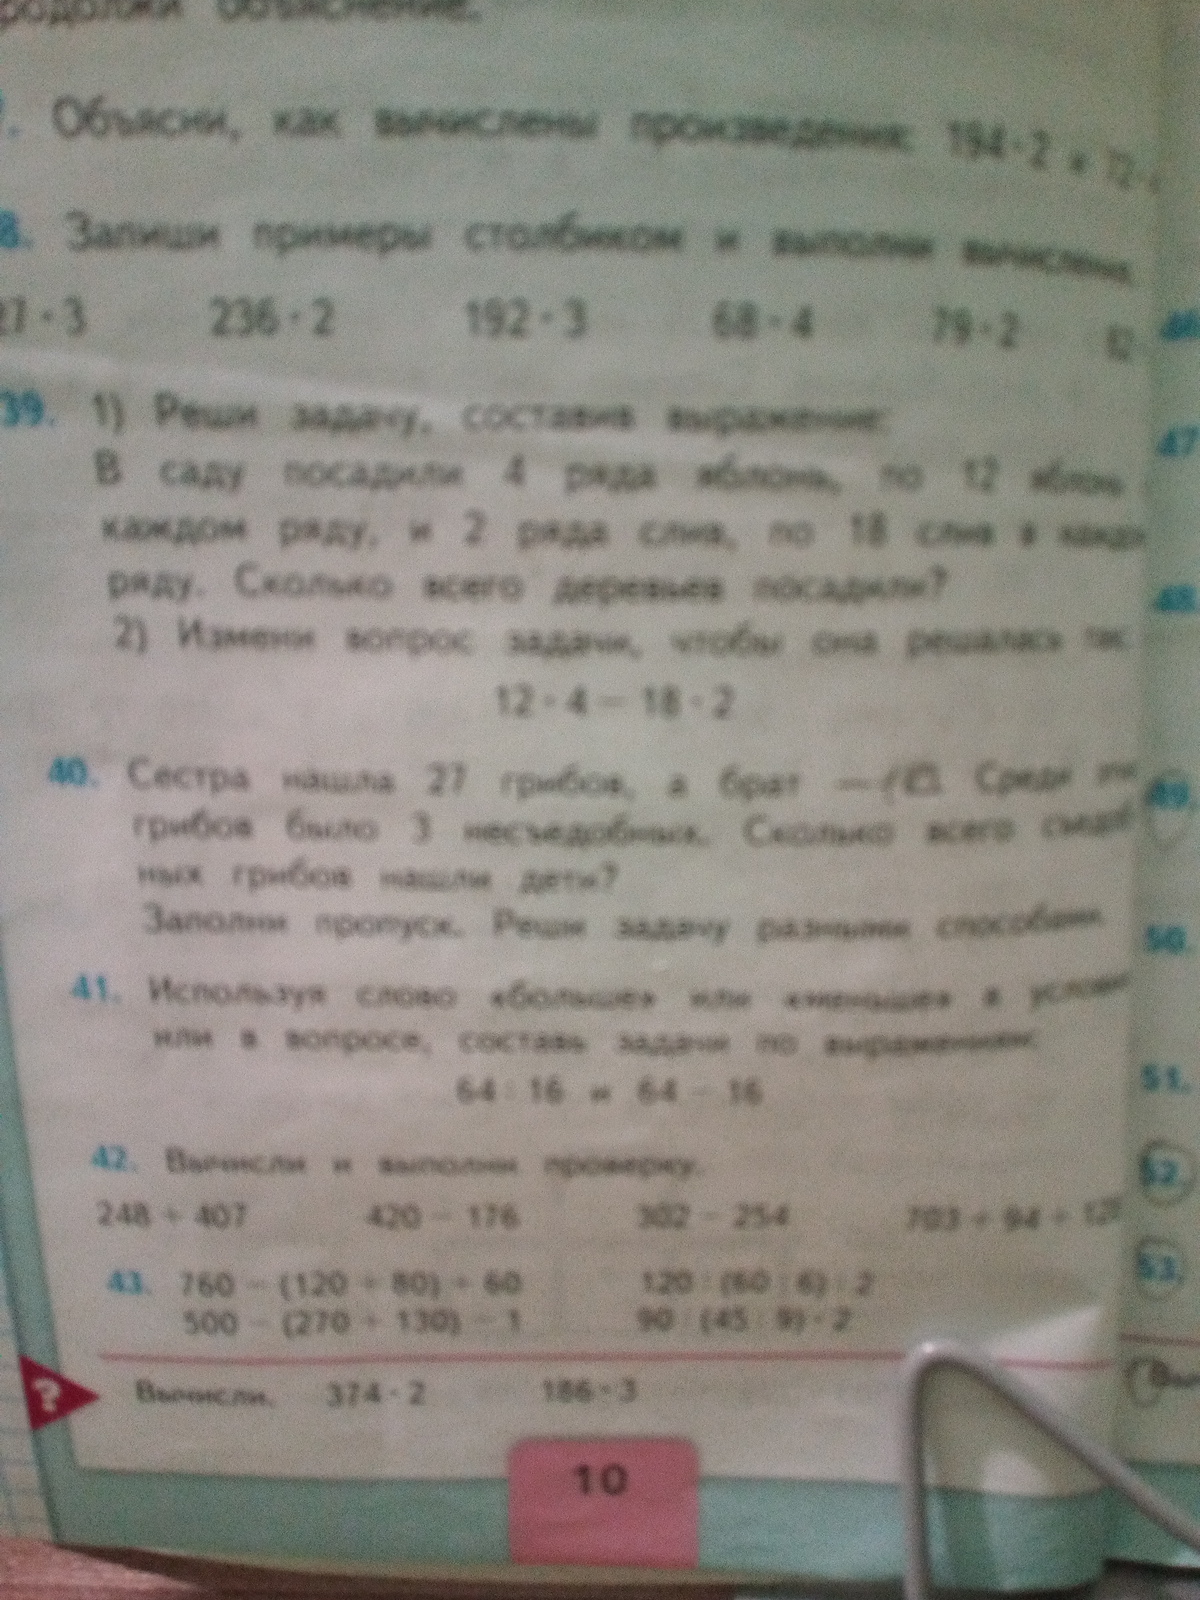 родолжи объяснение.
Объясни, как вычислены произведения: 194 · 2 и 72 ·
8. Запиши примеры столбиком и выполни
27 · 3 236 · 2 192 · 3 68 · 4 79 · 2
39. 1) Реши задачу, составив выражение:
В саду посадили 4 ряда яблонь, по 12 яблонь
каждом ряду, и 2 ряда слив, по 18 слив в кажд
ряду. Сколько всего деревьев посадили?
2) Измени вопрос задачи, чтобы она решалась так:
12 · 4 − 18 · 2
40. Сестра нашла 27 грибов, а брат — Среди
грибов было 3 несъедобных. Сколько всего съедоб
ных грибов нашли дети?
Заполни пропуск. Реши задачу разными способами.
41. Используя слово «больше» или «меньше» в услови
или в вопросе, составь задачи по выражениям:
64 : 16 и 64 − 16
42. Вычисли и выполни проверку.
248 + 407 420 − 176 302 − 254 703 + 94 +
43. 760 − (120 + 80) + 60 120 : (60 : 6) : 2
500 − (270 + 130) − 1 90 : (45 : 9) · 2
? Вычисли. 374 · 2 186 · 3
10
46
47
48
49.
50.
51.
52.
53.